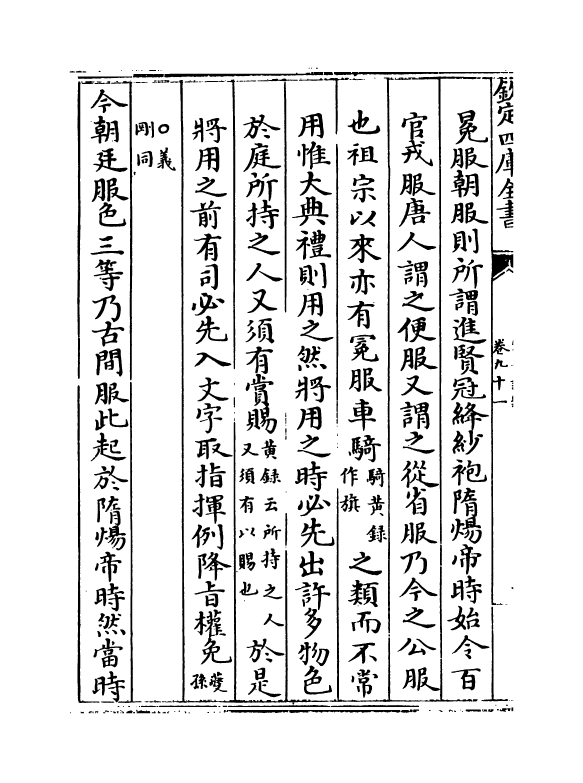 欽定四庫全書
卷九十一
冕服朝服則所謂進賢冠絳紗袍隋煬帝時始令百
官戎服唐人謂之便服又謂之從省服乃今之公服
也祖宗以來亦有冕服車騎騎黄録作旗之類而不常
用惟大典禮則用之然將用之時必先出許多物色
於庭所持之人又須有賞賜黄録云所持之人又須有以賜也於是
將用之前有司必先入文字取指揮例降旨權免夔孫
○義剛同
今朝廷服色三等乃古間服此起於隋煬帝時然當時